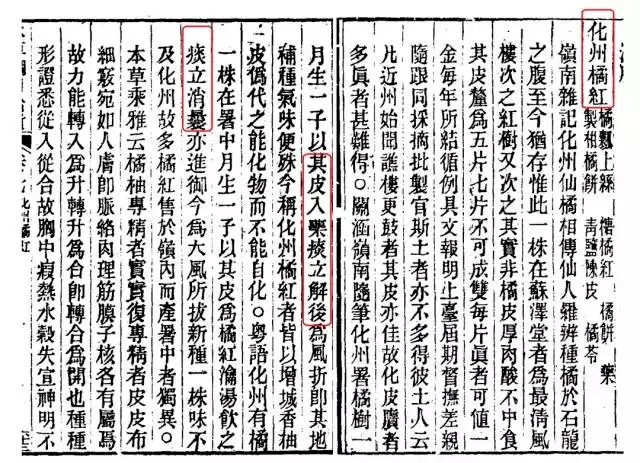 化州橘紅 橘瓤上絲 橘紅 橘餅 藥
製柑橘餅 青鹽陳皮 橘苓
嶺南雜記化州仙橘相傳仙人羅辨種橘於石龍
之腹至今猶存惟此一株在蘇澤堂者爲最淸風
樓次之紅樹又次之其實非橘皮厚肉酸不中食
其皮釐爲五片七片不可成雙每片眞者可値一
金每年所結循例具文報明上臺屆期督撫差親
隨跟同採摘批製官斯土者亦不多得彼土人云
凡近州始聞譙樓更鼓者其皮亦佳故化皮贋者
多眞者甚難得○關涵嶺南隨筆化州署橘樹一
月生一子以其皮入藥痰立解後爲風折卽其地
補種氣味便殊今稱化州橘紅者皆以增城香柚
皮僞代之能化物而不能自化○粵語化州有橘
一株在署中月生一子以其皮爲橘紅瀹湯飲之
痰立消曩亦進御今爲大風所拔新種一株味不
及化州故多橘紅售於嶺內而產署中者獨異○
本草乘雅云橘柚專精者實實復專精者皮皮布
細竅宛如人膚卽脈絡肉理筋膜子核各有屬焉
故力能轉入爲升轉升爲合卽轉合爲開也種種
形證悉從入從合故胸中瘕熱水穀失宣神明不